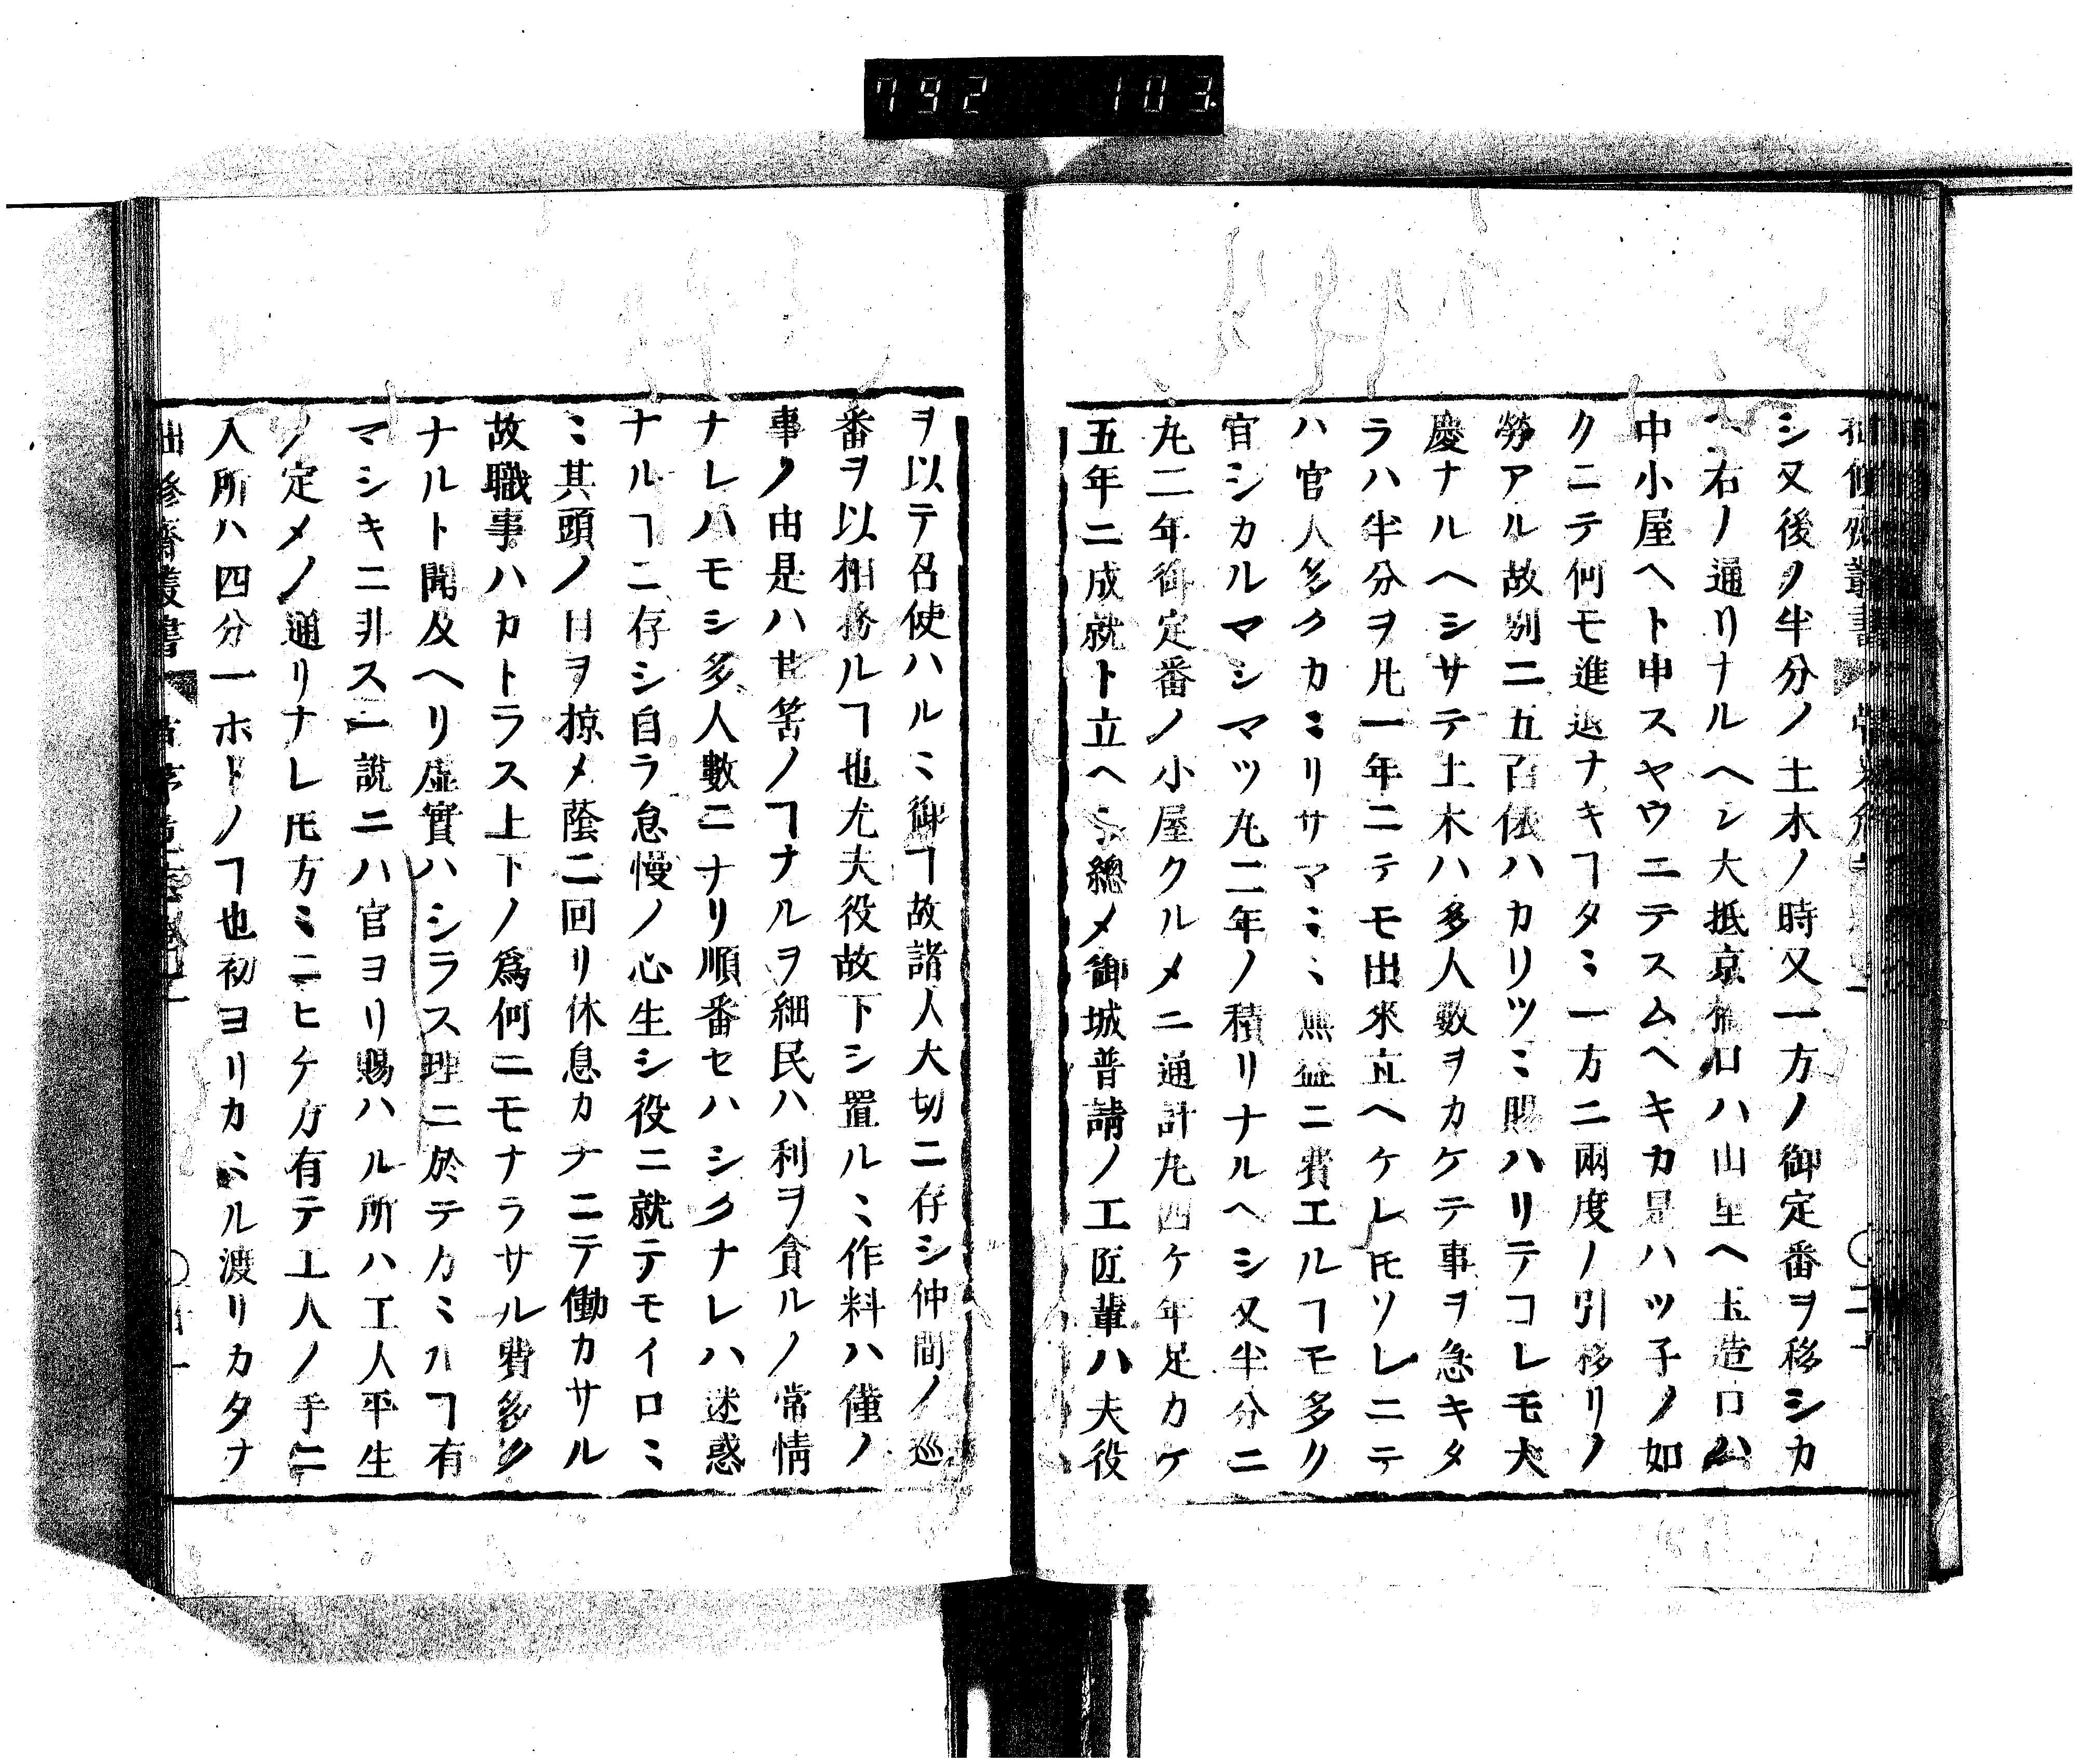 792 103
シ又後ノ半分ノ土木ノ時又一方ノ御定番ヲ移シカ
ヘ右ノ通リナルヘシ大抵京橋口ハ山里ヘ玉造口ハ
中小屋ヘト申スヤウニテスムヘキカ是ハツ子ノ如
クニテ何モ進退ナキヿタミ一方ニ兩度ノ引移リノ
勞アル故別ニ五百俵ハカリツミ賜ハリテコレモ大
慶ナルヘシサテ土木ハ多人數ヲカケテ事ヲ急キタ
ラハ半分ヲ凡一年ニテモ出來立ヘケレ𪜈ソレニテ
ハ官人多クカミリサマミミ無益ニ費エルヿモ多ク
官シカルマシマツ凡二年ノ積リナルヘシ又半分ニ
凡二年御定番ノ小屋クルメニ通計凡四ケ年足カケ
五年ニ成就ト立ヘシ總メ御城普請ノ工匠輩ハ夫役
ヲ以テ召使ハルミ御ヿ故諸人大切ニ存シ仲間ノ巡
番ヲ以相務ルヿ也尤夫役故下シ置ルミ作料ハ僅ノ
事ノ由是ハ其筈ノヿナルヲ細民ハ利ヲ貪ルノ常情
ナレハモシ多人數ニナリ順番セハシクナレハ迷惑
ナルヿニ存シ自ラ怠慢ノ心生シ役ニ就テモイロミ
ミ其頭ノ目ヲ掠メ蔭ニ回リ休息カチニテ働カサル
故職事ハカトラス上下ノ爲何ニモナラサル費多ク
ナルト聞及ヘリ虛實ハシラス理ニ於テカミルヿ有
マシキニ非ス一說ニハ官ヨリ賜ハル所ハ工人平生
ノ定メノ通リナレ𪜈方ミニヒケ方有テ工人ノ手ニ
入所ハ四分一ホトノヿ也初ヨリカミル渡リカタナ